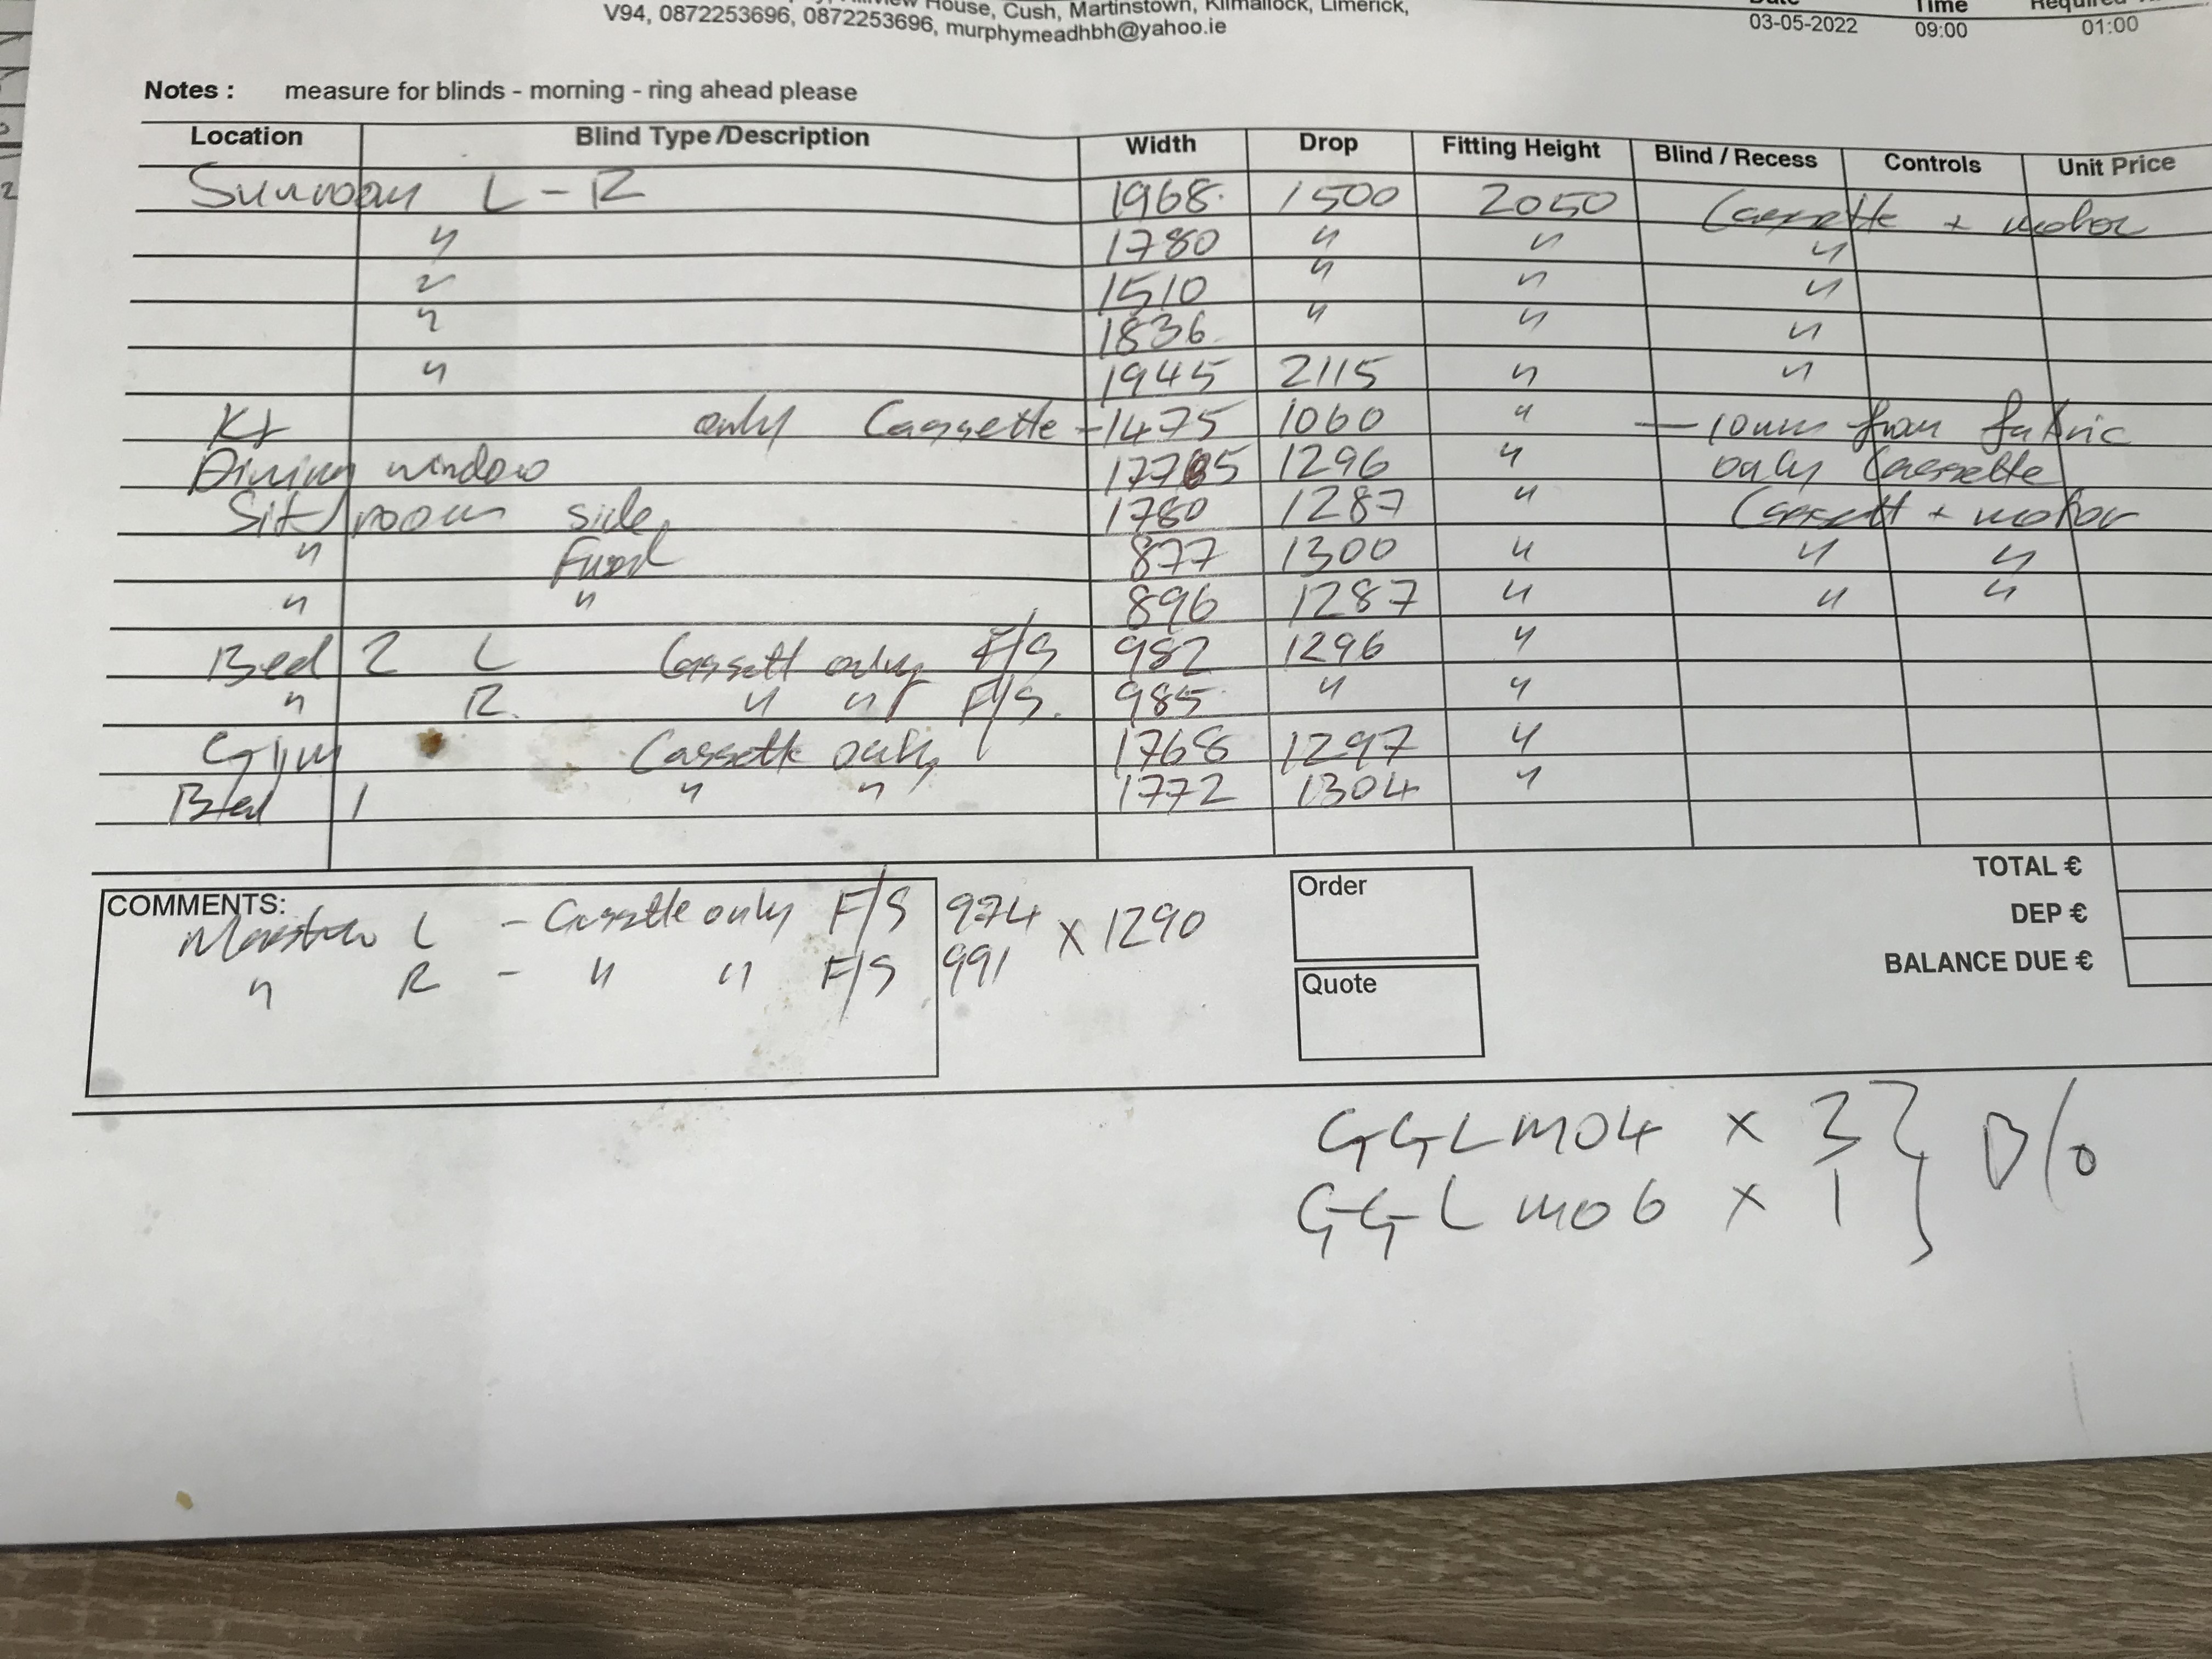 House, Cush, Martinstown, Kilmallock, Limerick,
V94, 0872253696, 0872253696, murphymeadhbh@yahoo.ie
Date Time Required
03-05-2022 09:00 01:00
Notes : measure for blinds - morning - ring ahead please
Location Blind Type /Description Width Drop Fitting Height Blind / Recess Controls Unit Price
Sunroom L - R 1968 1500 2050 Cassette + motor
" 1780 " " "
" 1510 " " "
" 1836 " " "
" 1945 2115 " "
Kt only Cassette - 1475 1060 " — 10mm from fabric
Dining window 1296 " only Cassette
Sit/room side 1780 1287 " Cassett + motor
" 877 1300 " " "
" " 896 1287 " " "
Bed 2 L Cassett only F/S 982 1296 "
" R. " " F/S. 985 " "
Gym Cassette only 1768 1297 "
Bed 1 " " 1772 1304 "
TOTAL €
DEP €
BALANCE DUE €
COMMENTS:
L - Cassette only F/S 974 x 1290
" R - " " F/S 991
Order
Quote
GGL M04 x 3 } D/O
GGL M06 x 1